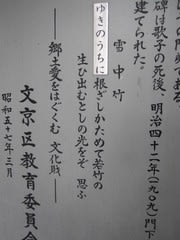 碑は歌子の死後、明治四十二年(一九〇九)門下
建てられた。
雪中竹
ゆきのうちに根ざしかためて若竹の
生ひ出むとしの光をぞ思ふ
―郷土愛をはぐくむ 文化財―
文京区教育委員会
昭和五十七年三月